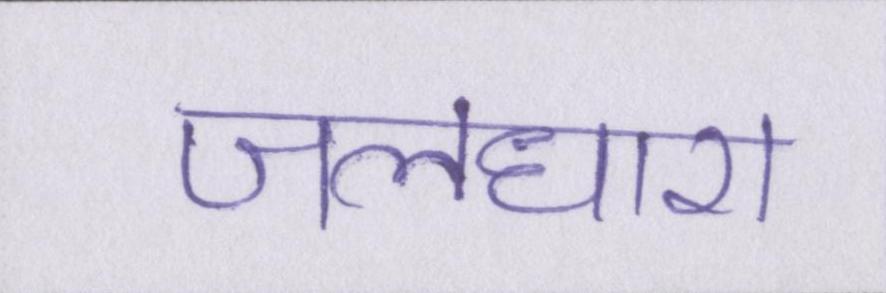 जलधारा